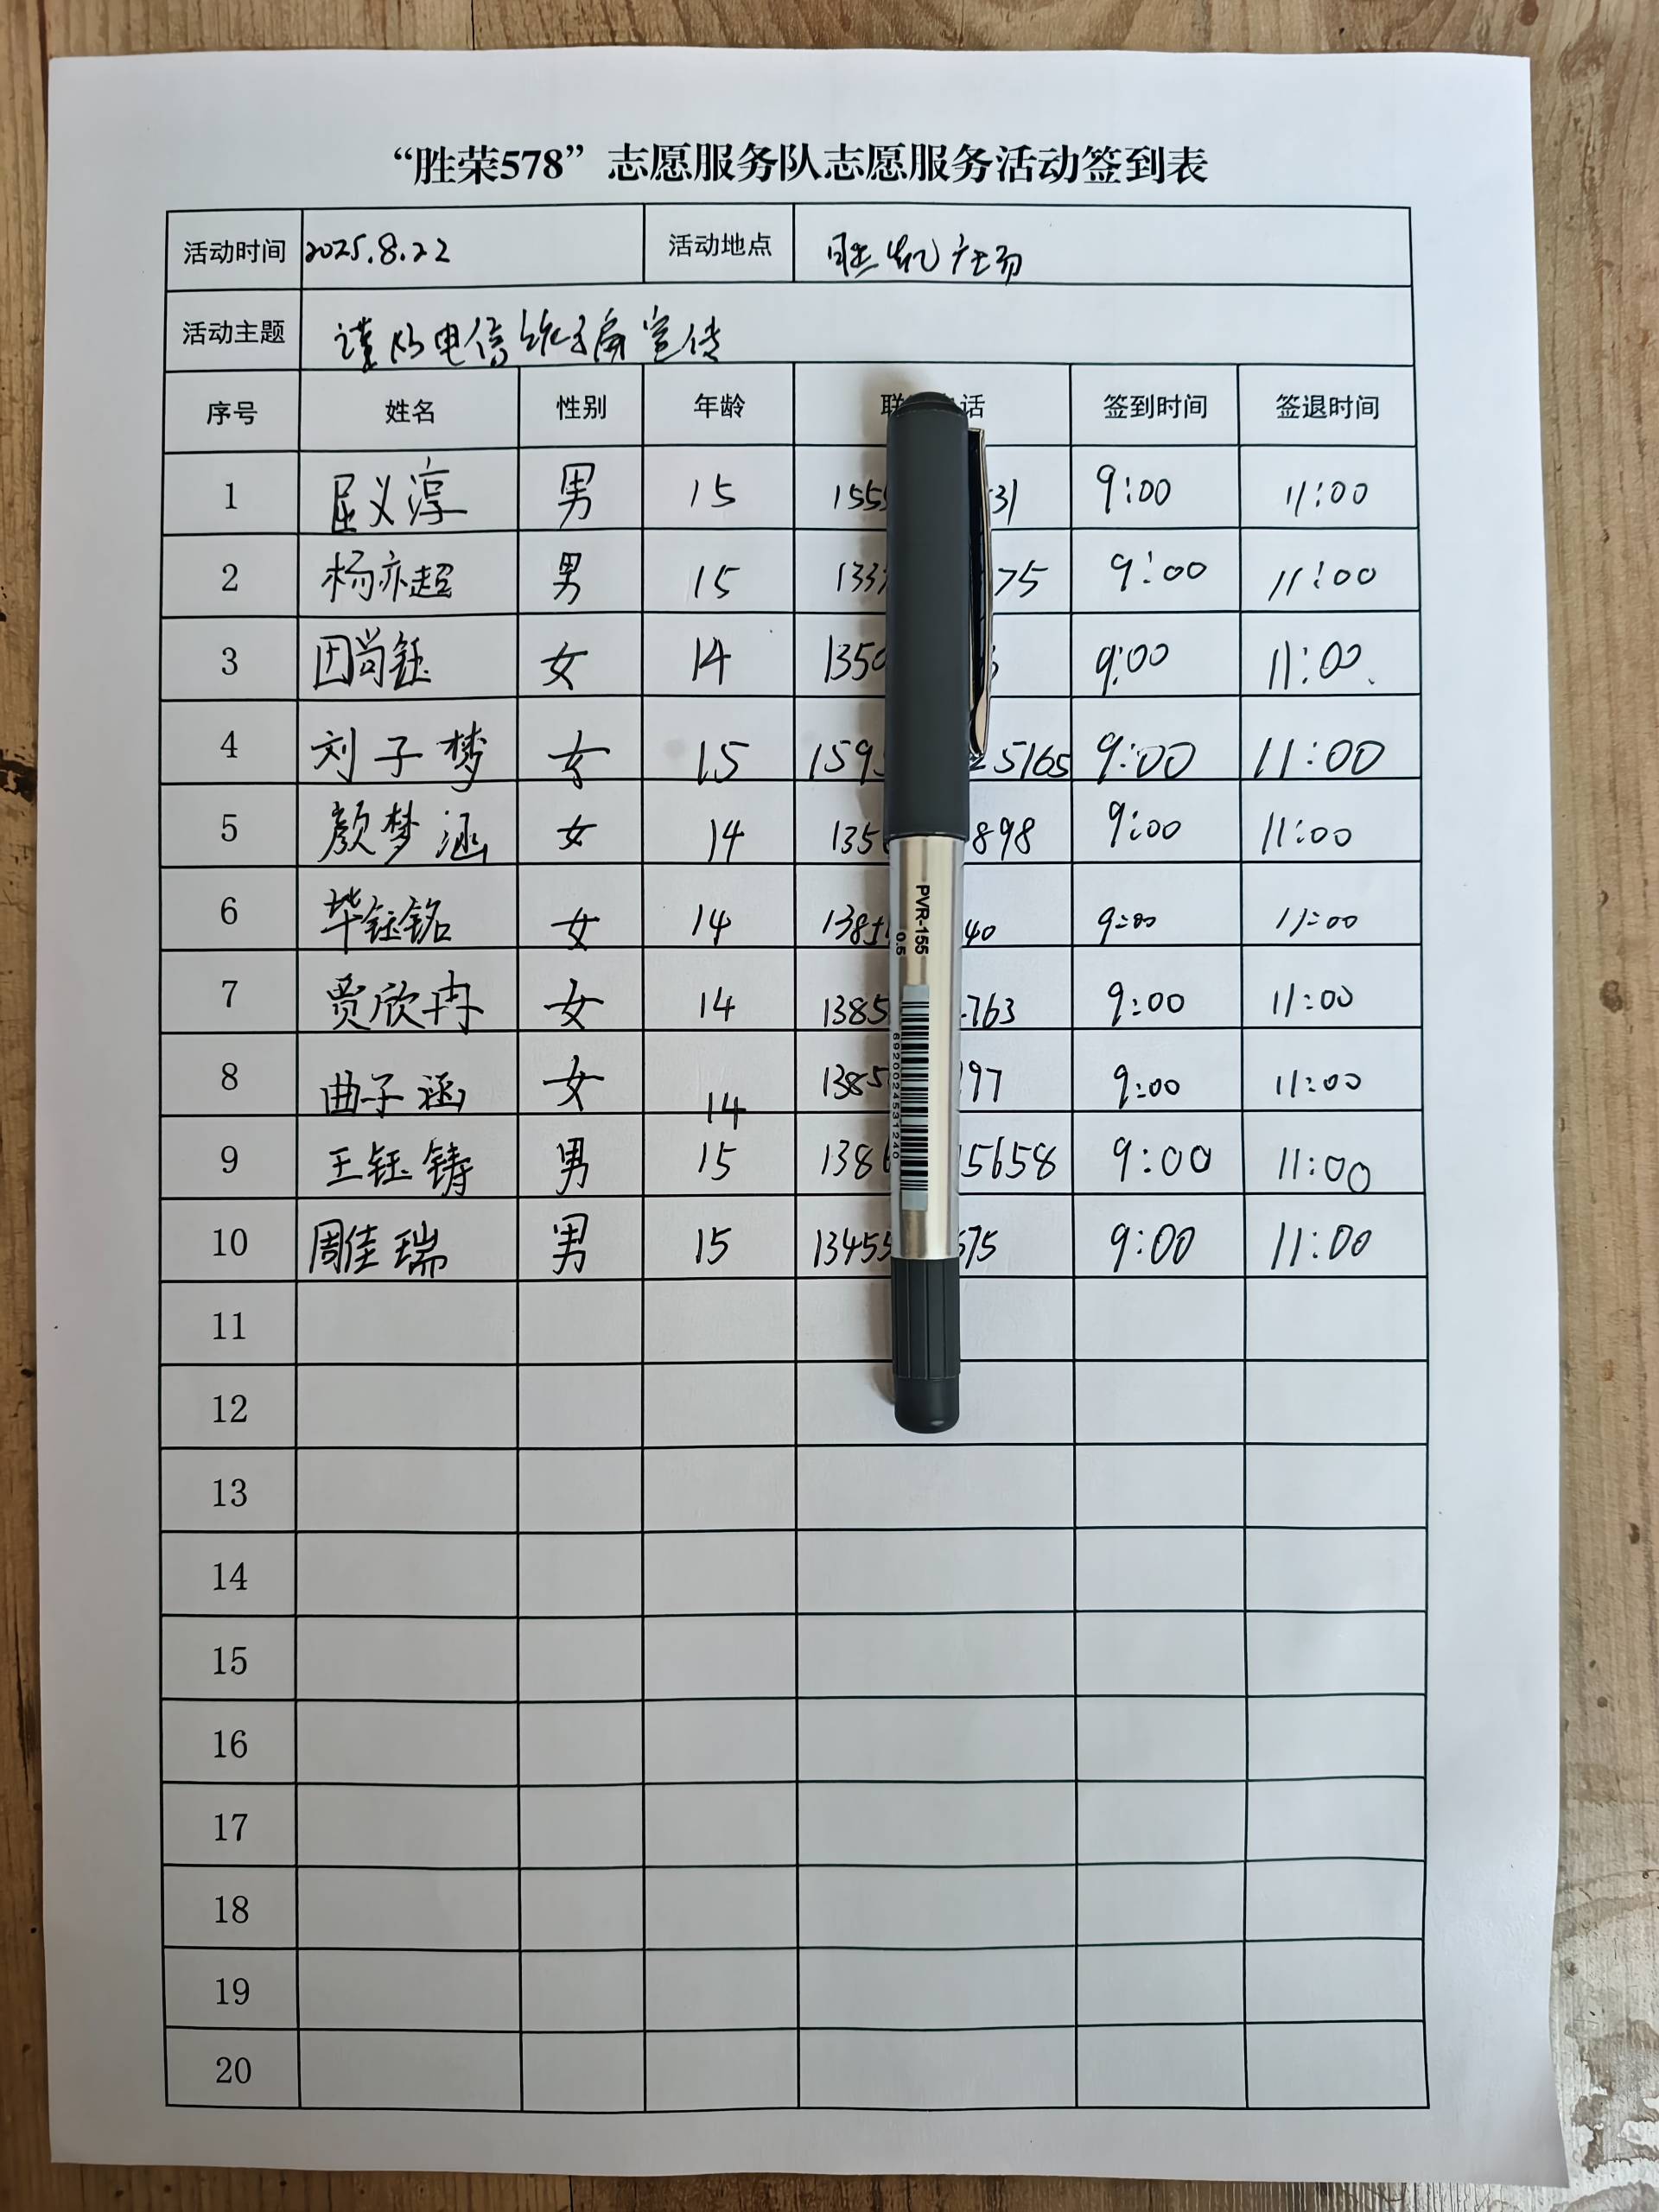 “胜荣578”志愿服务队志愿服务活动签到表
活动时间 2025.8.22 活动地点 胜凯广场
活动主题 谨防电信诈骗宣传
序号 姓名 性别 年龄 联 话 签到时间 签退时间
1 屈义淳 男 15 155 31 9:00 11:00
2 杨亦超 男 15 133 75 9:00 11:00
3 田尚钰 女 14 1350 9:00 11:00
4 刘子梦 女 15 159 5165 9:00 11:00
5 颜梦涵 女 14 135 898 9:00 11:00
6 毕钰铭 女 14 138 40 9:00 11:00
7 贾欣冉 女 14 1385 763 9:00 11:00
8 曲子涵 女 14 1385 97 9:00 11:00
9 王钰铸 男 15 138 5658 9:00 11:00
10 周佳瑞 男 15 13455 575 9:00 11:00
11
12
13
14
15
16
17
18
19
20
PVR-155
0.5
6920024531240